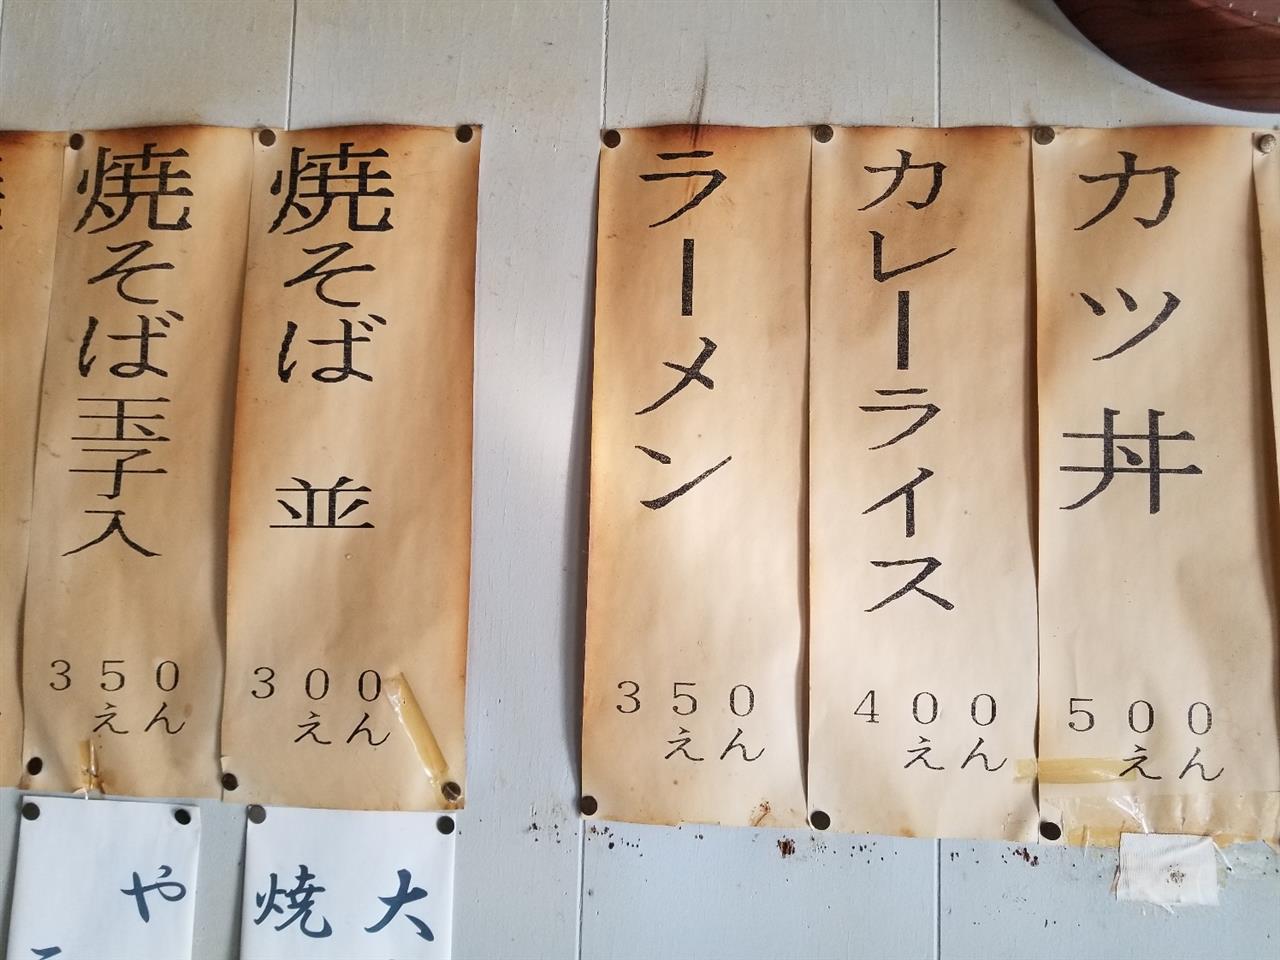 カツ丼
５００
えん
カレーライス
４００
えん
ラーメン
３５０
えん
焼そば 並
３００
えん
焼そば玉子入
３５０
えん
大
焼
や